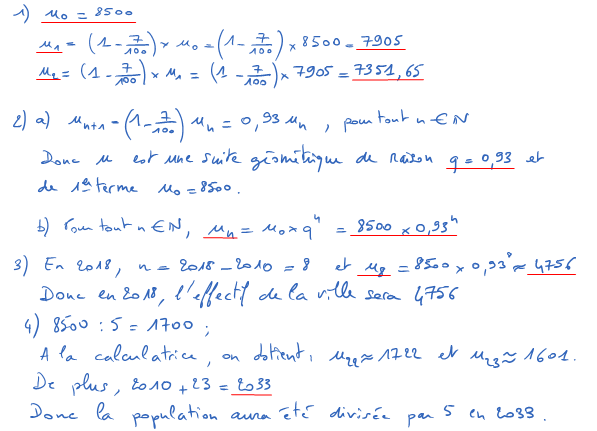 1) u₀ = 8500
u₁ = (1 - 7/100) × u₀ = (1 - 7/100) × 8500 = 7905
u₂ = (1 - 7/100) × u₁ = (1 - 7/100) × 7905 = 7351,65
2) a) uₙ₊₁ = (1 - 7/100) uₙ = 0,93 uₙ , pour tout n ∈ ℕ
Donc u est une suite géométrique de raison q = 0,93 et
de 1er terme u₀ = 8500.
b) Pour tout n ∈ ℕ, uₙ = u₀ × qⁿ = 8500 × 0,93ⁿ
3) En 2018, n = 2018 - 2010 = 8 et u₈ = 8500 × 0,93⁸ ≈ 4756
Donc en 2018, l'effectif de la ville sera 4756
4) 8500 : 5 = 1700 ;
A la calculatrice, on obtient, u₂₂ ≈ 1722 et u₂₃ ≈ 1601.
De plus, 2010 + 23 = 2033
Donc la population aura été divisée par 5 en 2033.